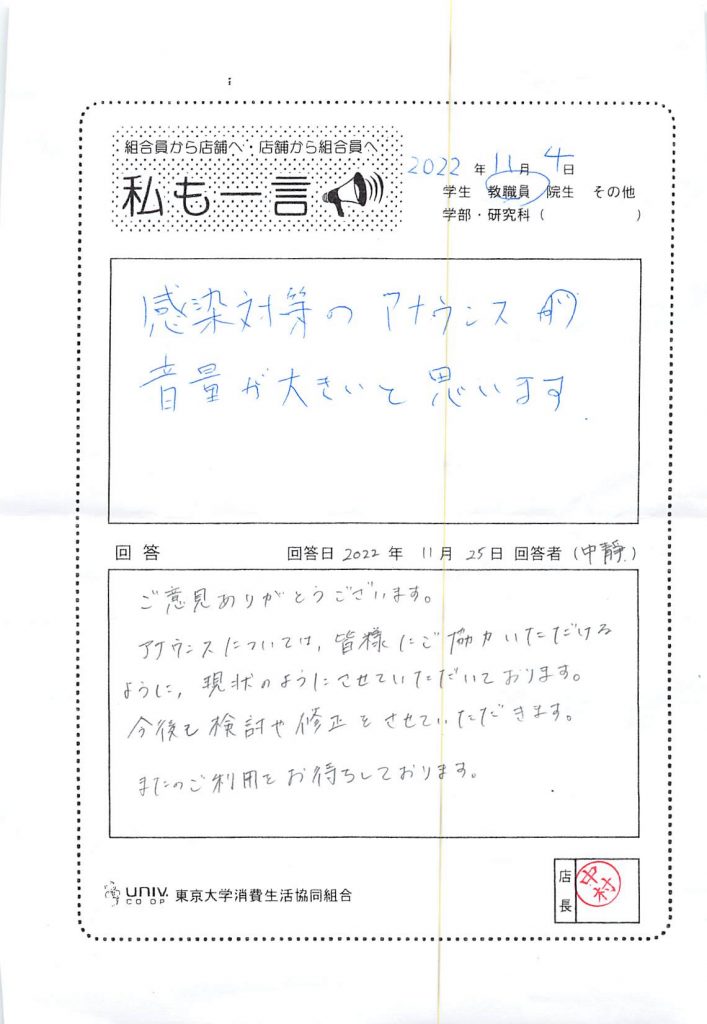 組合員から店舗へ・店舗から組合員へ
私も一言
2022年11月4日
学生 教職員 院生 その他
学部・研究科( )
感染対等のアナウンスが
音量が大きいと思います.
回答 回答日 2022年 11月 25日 回答者(中靜)
ご意見ありがとうございます。
アナウンスについては、皆様にご協力いただける
ように、現状のようにさせていただいております。
今後も検討や修正をさせていただきます。
またのご利用をお待ちしております。
UNIV. CO-OP 東京大学消費生活協同組合
店長 中村